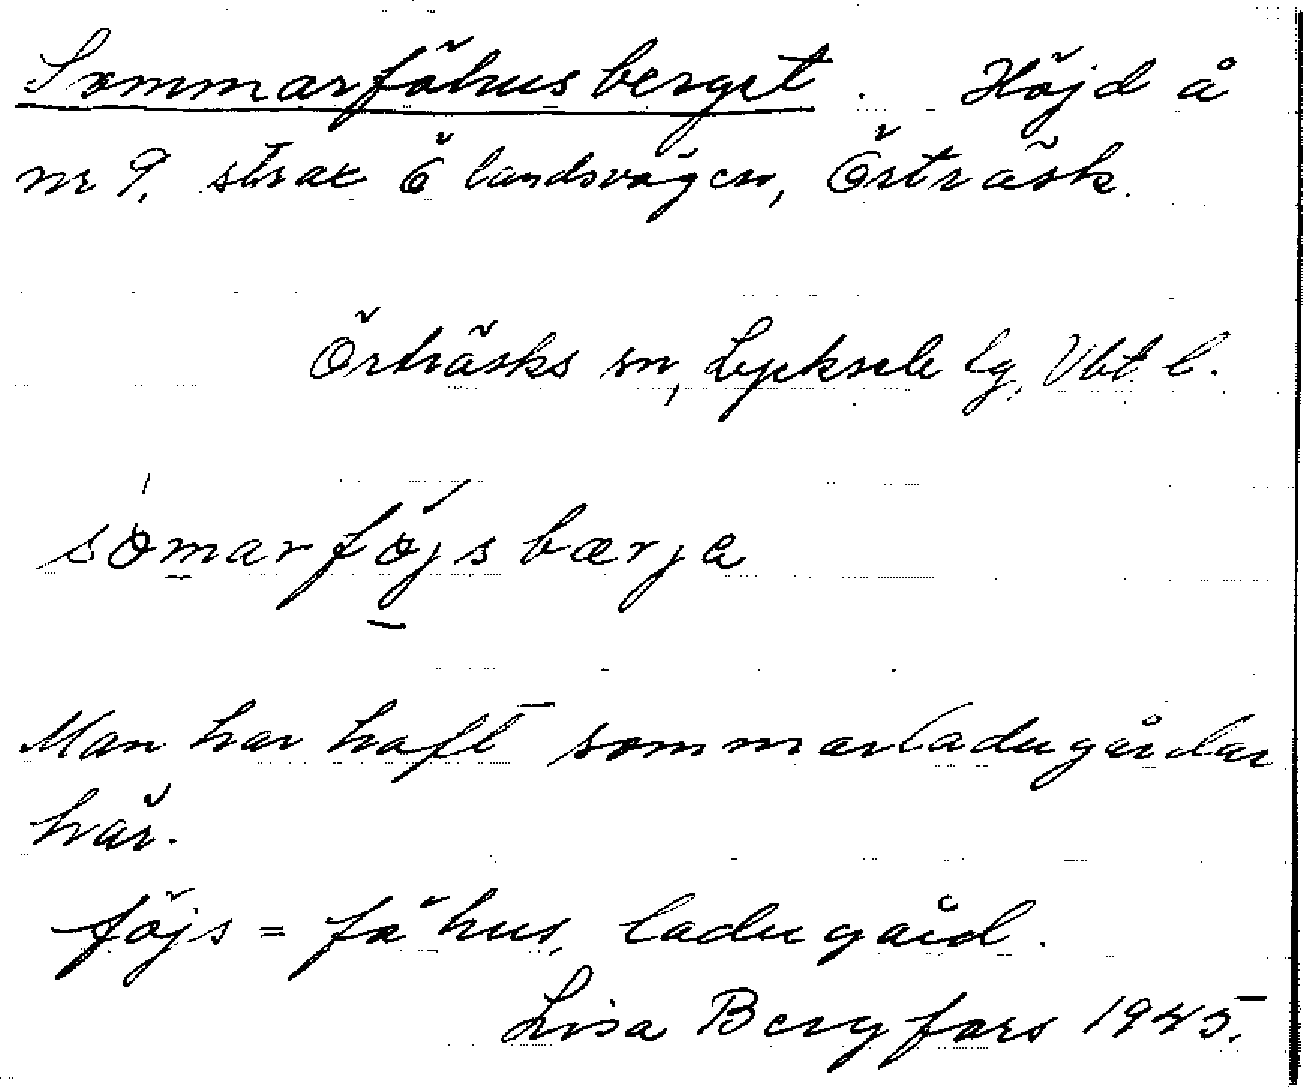 Sommarfähusberget. Höjd å
nr 9, strax ö landsvägen, Örträsk.
Örträsks sn, Lycksele lg, Vbt l.
sömarföjsbærja
Man har haft sommarladugårdar
här.
föjs = fähus, ladugård.
Lisa Bergfors 1945.